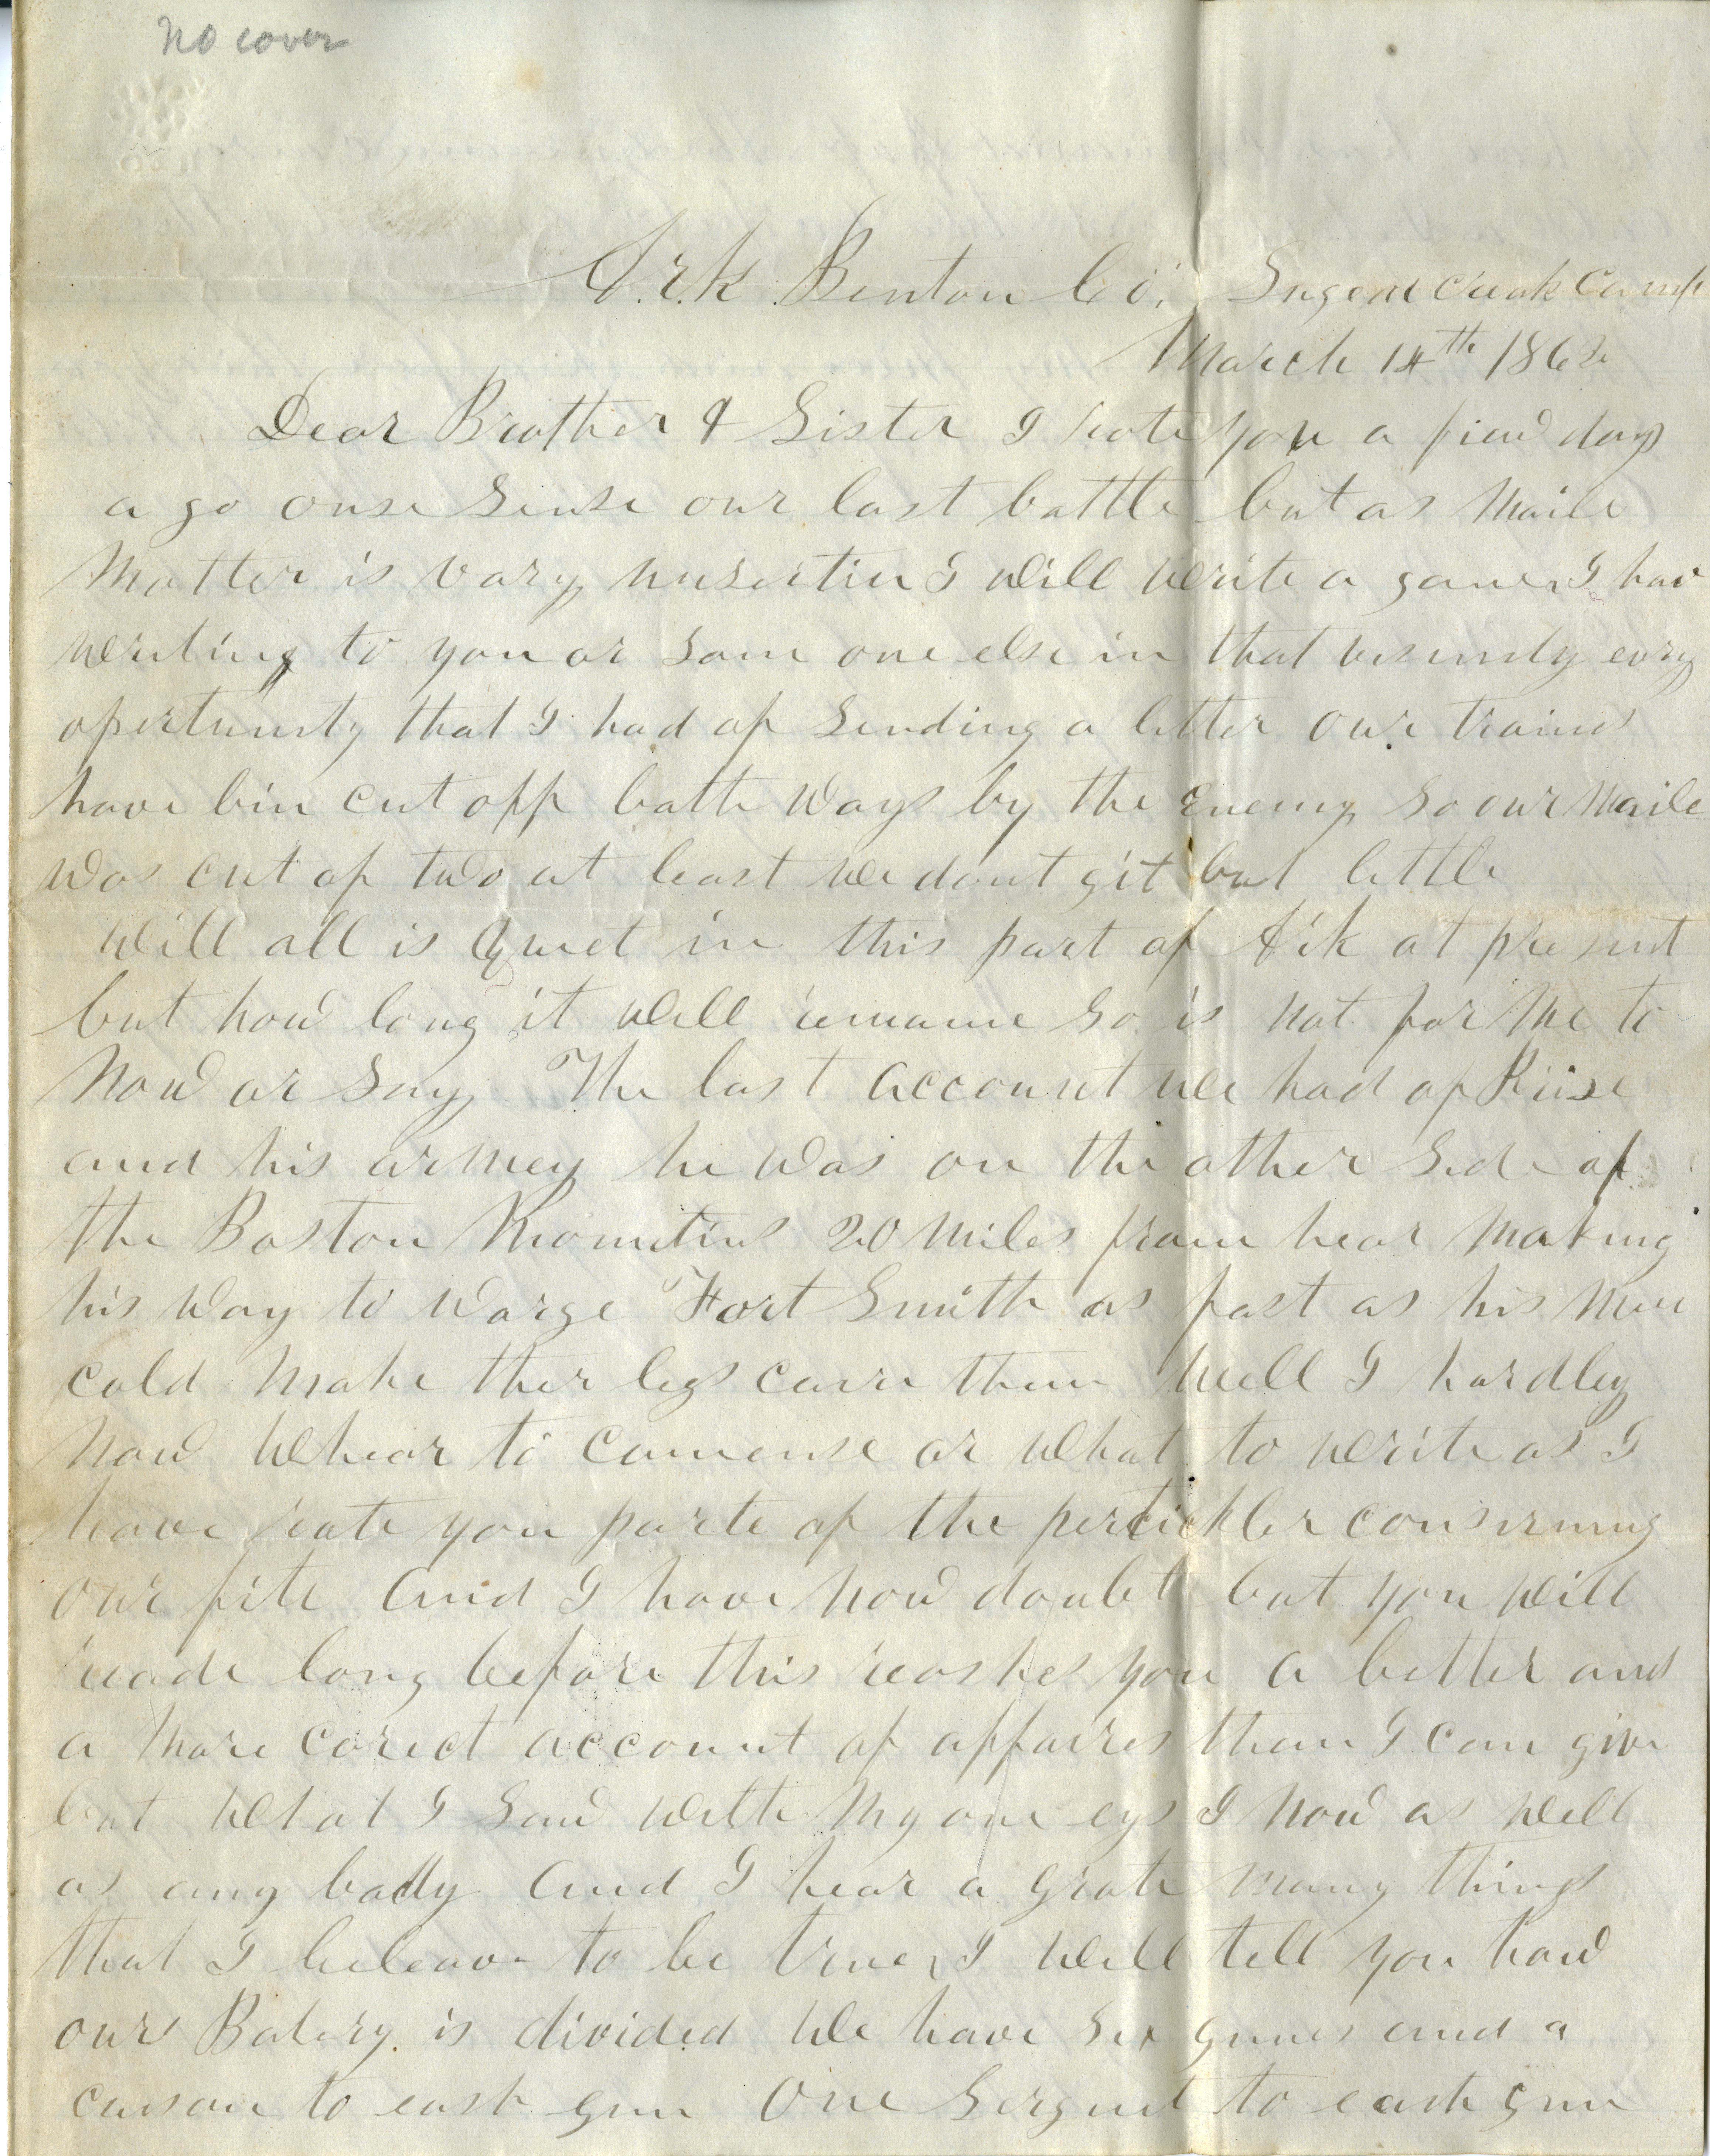 no cover
Ark Benton Co; Sugar Creak Camp
March 14th 1862
Dear Brother & Sister I rote you a fiew days
a go onse sense our last battle but as Maile
Matter is vary unsertin I will write a gane I hav
writing to you or some one else in that visinity evry
opertunity that I had of sending a letter our trains
have bin cut off bothe ways by the Enemy so our Maile
was cut of two at least we dont git but little
Well all is Quiet in this part of Ark at present
but how long it will remane so is not for Me to
Now or Say The last account we had of Prise
and his armey he was on the other Side of
the Boston Mountins 20 Miles from hear Making
his way to warge Fort Smith as fast as his Men
cold Make ther legs carre them Well I hardley
Now Whear to comense or What to write as I
have rote you parte of the pertickler conserning
our fite and I have now doubt but you will
reade long before this reashes you a better and
a More corect account of affaires than I can give
but What I saw with My one eys I Now as well
as any body and I hear a grate Many things
that I beleave to be true I Will tell you how
our Batery is divided We have Six gunes and a
casone to eash gun One Sergent to eash gun